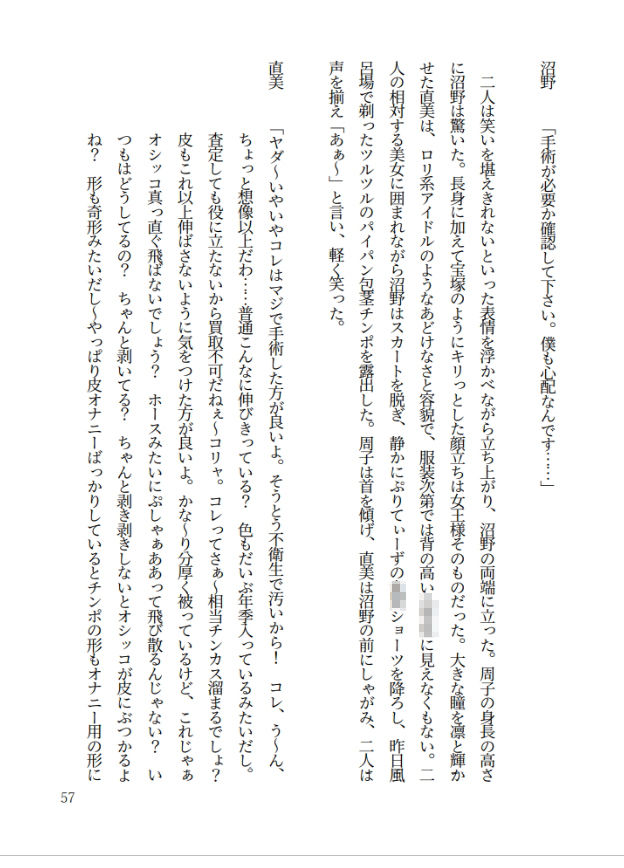 沼野　「手術が必要か確認して下さい。僕も心配なんです……」
二人は笑いを堪えきれないといった表情を浮かべながら立ち上がり、沼野の両端に立った。周子の身長の高さ
に沼野は驚いた。長身に加えて宝塚のようにキリっとした顔立ちは女王様そのものだった。大きな瞳を凛と輝か
せた直美は、ロリ系アイドルのようなあどけなさと容貌で、服装次第では背の高い に見えなくもない。二
人の相対する美女に囲まれながら沼野はスカートを脱ぎ、静かにぷりてぃーずの ショーツを降ろし、昨日風
呂場で剃ったツルツルのパイパン包茎チンポを露出した。周子は首を傾げ、直美は沼野の前にしゃがみ、二人は
声を揃え「あぁ～」と言い、軽く笑った。
直美　「ヤダ～いやいやコレはマジで手術した方が良いよ。そうとう不衛生で汚いから！　コレ、う～ん、
ちょっと想像以上だわ……普通こんなに伸びきっている？　色もだいぶ年季入っているみたいだし。
査定しても役に立たないから買取不可だねぇ～コリャ。コレってさぁ～相当チンカス溜まるでしょ？
皮もこれ以上伸ばさないように気をつけた方が良いよ。かな～り分厚く被っているけど、これじゃぁ
オシッコ真っ直ぐ飛ばないでしょう？　ホースみたいにぷしゃぁああって飛び散るんじゃない？　い
つもはどうしてるの？　ちゃんと剥いてる？　ちゃんと剥き剥きしないとオシッコが皮にぶつかるよ
ね？　形も奇形みたいだし～やっぱり皮オナニーばっかりしているとチンポの形もオナニー用の形に
57